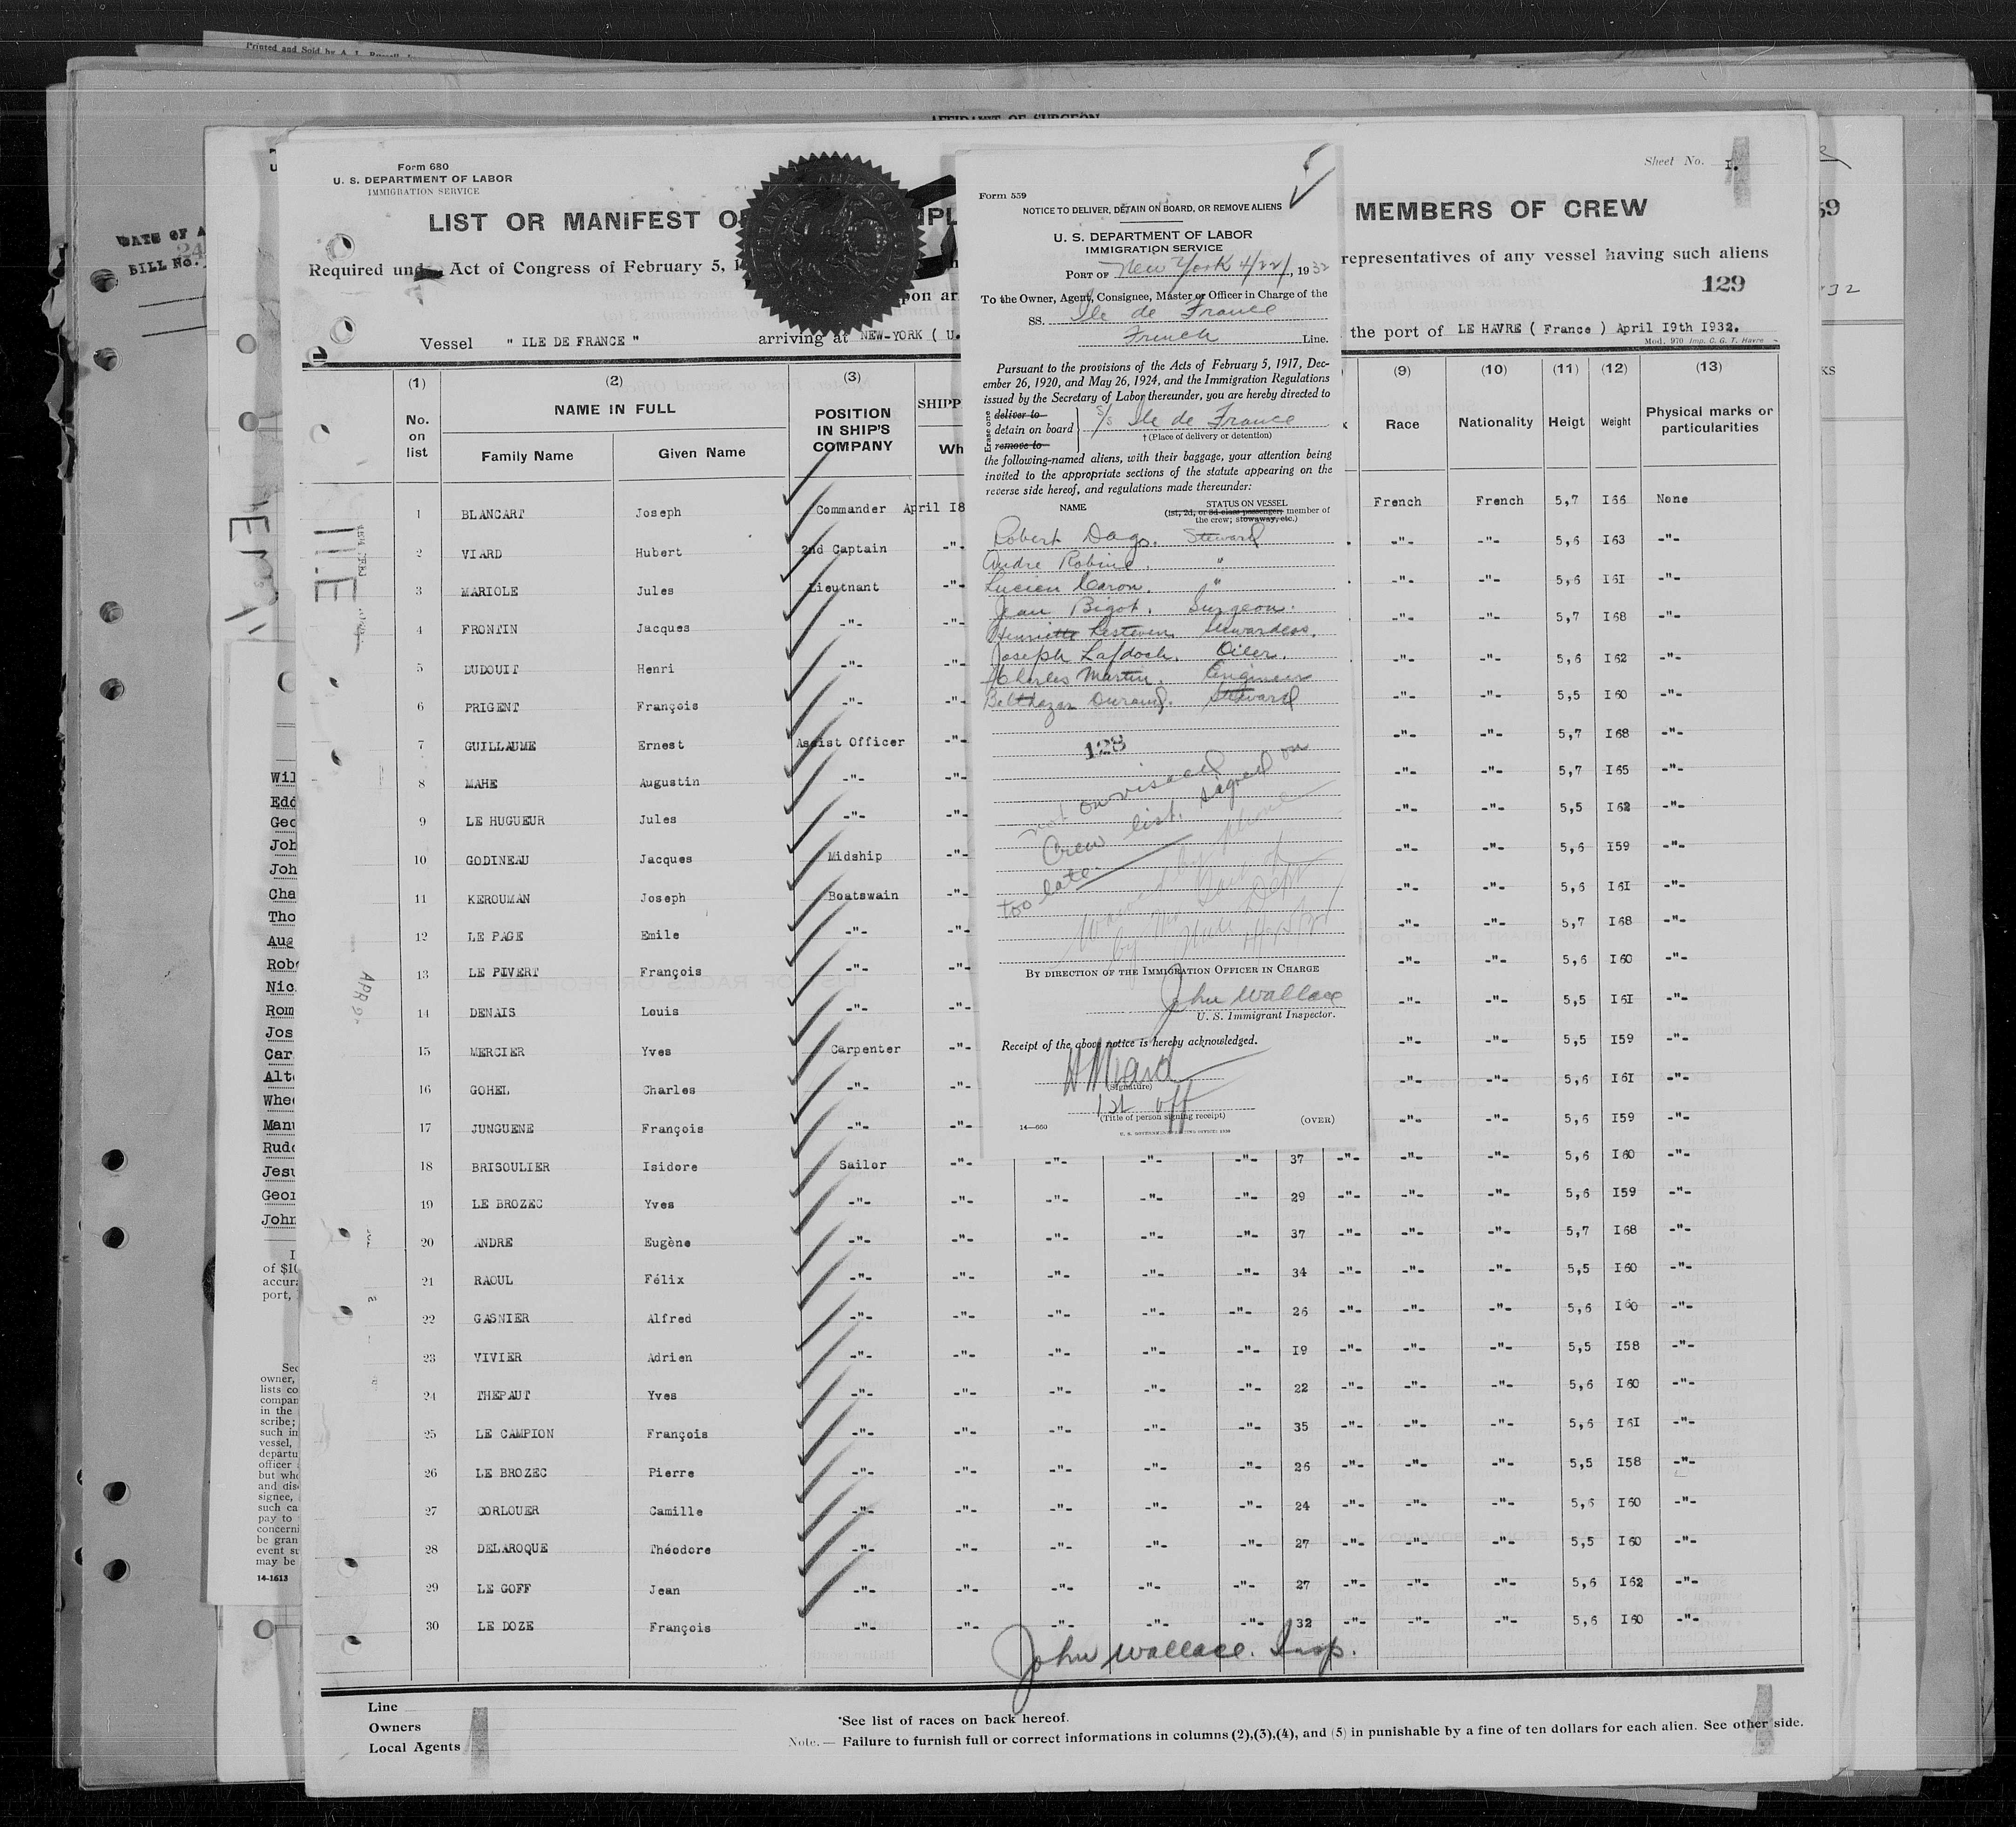 Printed and Sold by A. L.
AFFIDAVIT OF SURGEON
DATE OF A
BILL No.
Form 680
U. S. DEPARTMENT OF LABOR
IMMIGRATION SERVICE
Sheet No. I.
LIST OR MANIFEST O MEMBERS OF CREW
Required und Act of Congress of February 5, 1 representatives of any vessel having such aliens
129
pon ar
Vessel " ILE DE FRANCE " arriving at NEW-YORK ( U. the port of LE HAVRE ( France ) April I9th I932.
Mod. 970 Imp. C. G. T. Havre
(1) (2) (3) (9) (10) (11) (12) (13)
No. on list NAME IN FULL POSITION IN SHIP'S COMPANY SHIPP Race Nationality Heigt Weight Physical marks or particularities
Family Name Given Name Wh
1 BLANCART Joseph Commander April I8 French French 5,7 I66 None
2 VIARD Hubert 2nd Captain -"- -"- -"- 5,6 I63 -"-
3 MARIOLE Jules Lieutnant -"- -"- -"- 5,6 I6I -"-
4 FRONTIN Jacques -"- -"- -"- -"- 5,7 I68 -"-
5 DUDOUIT Henri -"- -"- -"- -"- 5,6 I62 -"-
6 PRIGENT François -"- -"- -"- -"- 5,5 I60 -"-
7 GUILLAUME Ernest Assist Officer -"- -"- -"- 5,7 I68 -"-
8 MAHE Augustin -"- -"- -"- -"- 5,7 I65 -"-
9 LE HUGUEUR Jules -"- -"- -"- 5,5 I62 -"-
10 GODINEAU Jacques Midship -"- -"- -"- 5,6 I59 -"-
11 KEROUMAN Joseph Boatswain -"- -"- -"- 5,6 I6I -"-
12 LE PAGE Emile -"- -"- -"- -"- 5,7 I68 -"-
13 LE PIVERT François -"- -"- -"- -"- 5,6 I60 -"-
14 DENAIS Louis -"- -"- -"- -"- 5,5 I6I -"-
15 MERCIER Yves Carpenter -"- -"- -"- 5,5 I59 -"-
16 GOHEL Charles -"- -"- -"- -"- 5,6 I6I -"-
17 JUNGUENE François -"- -"- -"- -"- 5,6 I59 -"-
18 BRISOULIER Isidore Sailor -"- -"- -"- -"- 37 -"- -"- -"- 5,6 I60 -"-
19 LE BROZEC Yves -"- -"- -"- -"- -"- 29 -"- -"- -"- 5,6 I59 -"-
20 ANDRE Eugène -"- -"- -"- -"- -"- 37 -"- -"- -"- 5,7 I68 -"-
21 RAOUL Félix -"- -"- -"- -"- -"- 34 -"- -"- -"- 5,5 I60 -"-
22 GASNIER Alfred -"- -"- -"- -"- -"- 26 -"- -"- -"- 5,6 I60 -"-
23 VIVIER Adrien -"- -"- -"- -"- -"- I9 -"- -"- -"- 5,5 I58 -"-
24 THEPAUT Yves -"- -"- -"- -"- -"- 22 -"- -"- -"- 5,6 I60 -"-
25 LE CAMPION François -"- -"- -"- -"- -"- 35 -"- -"- -"- 5,6 I6I -"-
26 LE BROZEC Pierre -"- -"- -"- -"- -"- 26 -"- -"- -"- 5,5 I58 -"-
27 CORLOUER Camille -"- -"- -"- -"- -"- 24 -"- -"- -"- 5,6 I60 -"-
28 DELAROQUE Théodore -"- -"- -"- -"- -"- 27 -"- -"- -"- 5,5 I60 -"-
29 LE GOFF Jean -"- -"- -"- -"- -"- 27 -"- -"- -"- 5,6 I62 -"-
30 LE DOZE François -"- -"- -"- -"- -"- 32 -"- -"- -"- 5,6 I60 -"-
John Wallace. Insp.
Line
Owners
Local Agents
*See list of races on back hereof.
Note. — Failure to furnish full or correct informations in columns (2),(3),(4), and (5) in punishable by a fine of ten dollars for each alien. See other side.
Form 559
NOTICE TO DELIVER, DETAIN ON BOARD, OR REMOVE ALIENS
U. S. DEPARTMENT OF LABOR
IMMIGRATION SERVICE
PORT OF New York 4/22/, 1932
To the Owner, Agent, Consignee, Master or Officer in Charge of the
SS. Ile de France
French Line.
Pursuant to the provisions of the Acts of February 5, 1917, Dec-
ember 26, 1920, and May 26, 1924, and the Immigration Regulations
issued by the Secretary of Labor thereunder, you are hereby directed to
Erase one
deliver to
detain on board
remove to
S/S Ile de France
† (Place of delivery or detention)
the following-named aliens, with their baggage, your attention being
invited to the appropriate sections of the statute appearing on the
reverse side hereof, and regulations made thereunder:
NAME STATUS ON VESSEL
(1st, 2d, or 3d class passenger; member of
the crew; stowaway, etc.)
Robert Dago. Steward
Andre Robine. "
Lucien Caron. "
Jean Bigot. Surgeon.
Henriette Lesteven Stewardess.
Joseph Lafdoch. Oiler.
Charles Martin. Engineer
Balthazar Durand. Steward
128
not on visaed
Crew list. signed on
too late.
BY DIRECTION OF THE IMMIGRATION OFFICER IN CHARGE
John Wallace
U. S. Immigrant Inspector.
Receipt of the above notice is hereby acknowledged.
H Viard
(Signature)
1st off
(Title of person signing receipt)
14—660 (OVER)
Wil
Edd
Geo
Joh
Joh
Cha
Tho
Aug
Robe
Nic
Rom
Jos
Car
Alt
Whe
Manu
Rudo
Jesu
Geor
John
I
of $10
accura
port,
Sec
owner,
lists co
compan
in the
scribe;
such in
vessel,
departu
officer
but who
and dis
signee,
such ca
pay to
concerni
be gran
event su
may be
14-1613